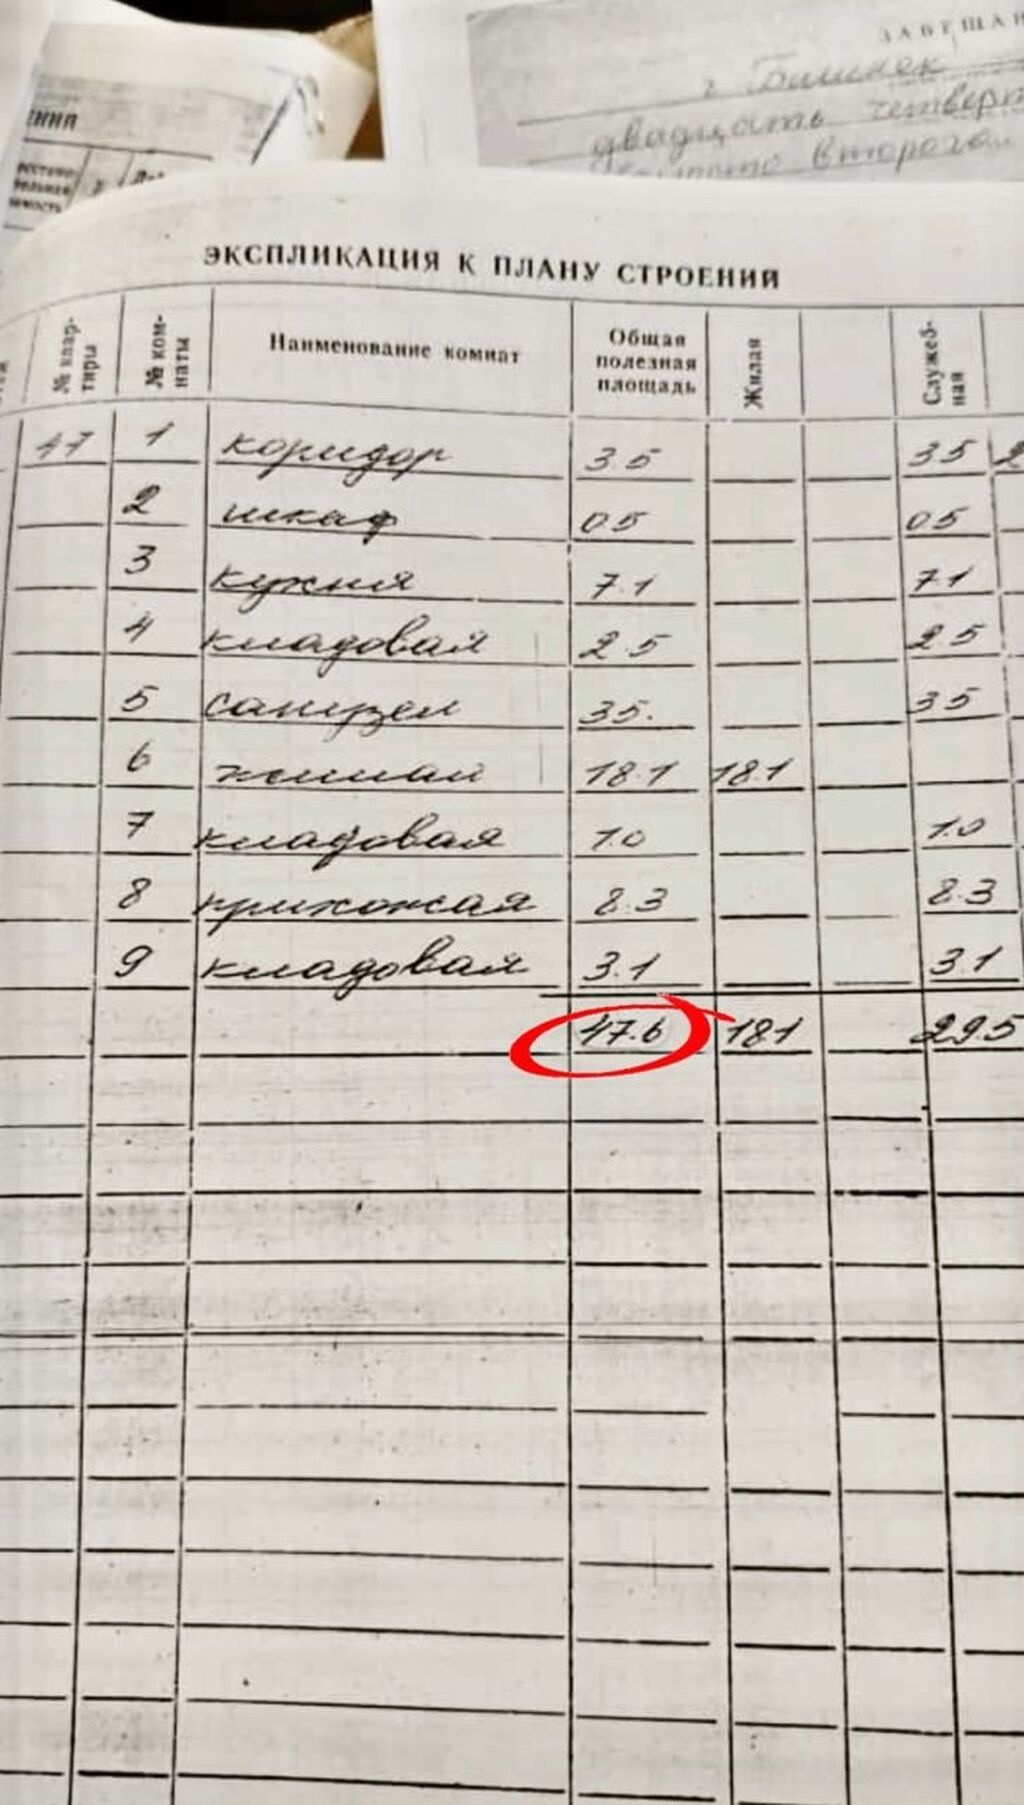 ЗАВЕЩАН
г Бишкек
двадцать четверт
второго
ЕНИЯ
ЭКСПЛИКАЦИЯ К ПЛАНУ СТРОЕНИЙ
№ квар-тиры № ком-наты Наименование комнат Общая полезная площадь Жилая Служеб-ная
47 1 коридор 3 5 3 5 2
2 шкаф 0 5 0 5
3 кухня 7.1 7 1
4 кладовая 2 5 2 5
5 санузел 3 5. 3 5
6 жилая 18.1 18.1
7 кладовая 1.0 1.0
8 прихожая 8.3 8.3
9 кладовая 3.1 3.1
47.6 18.1 29.5